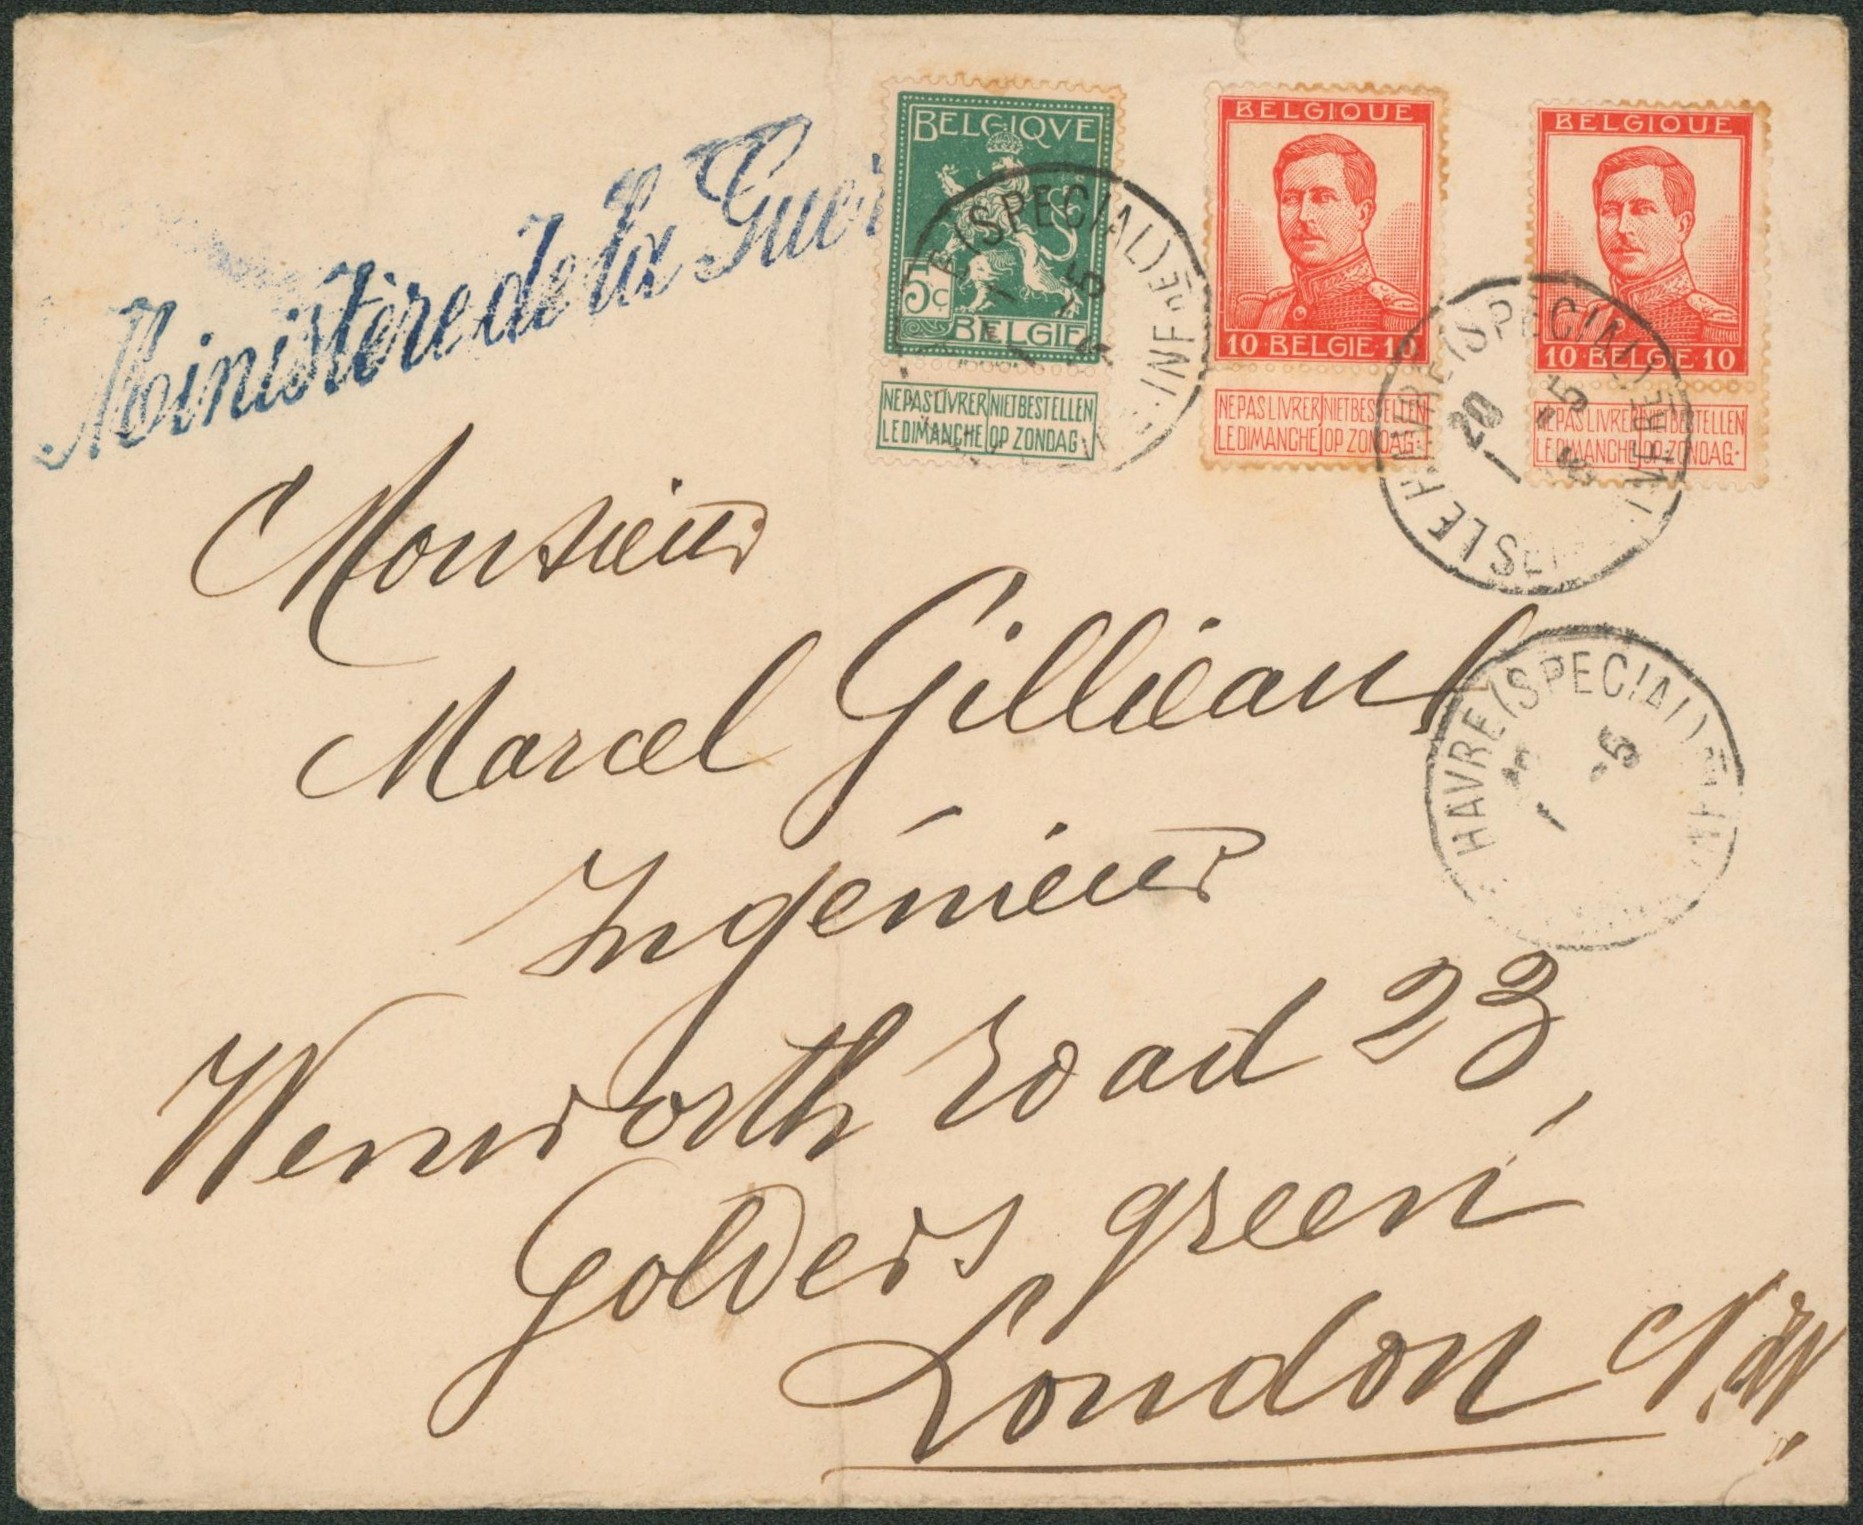 Ministère de la Guer
BELGIQVE
5c
BELGIË
NE PAS LIVRER NIET BESTELLEN
LE DIMANCHE OP ZONDAG
BELGIQUE
10 BELGIE 10
NE PAS LIVRER NIET BESTELLEN
LE DIMANCHE OP ZONDAG.
BELGIQUE
10 BELGIE 10
NE PAS LIVRER NIET BESTELLEN
LE DIMANCHE OP ZONDAG.
(SPECIAL)
LE HAVRE (SPECIAL)
20
HAVRE (SPECIAL)
-5
Monsieur
Marcel Gilliaux
Ingénieur
Wenworth road 23,
Golders green,
London N.W.